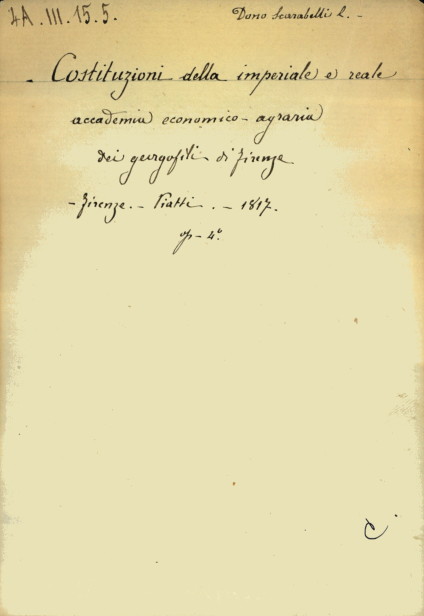 4A.III.15.5.
Dono Scarabelli L. -
- Costituzioni della imperiale e reale
accademia economico-agraria
dei georgofili di Firenze
- Firenze. - Piatti. - 1817.
op - 4°.
C